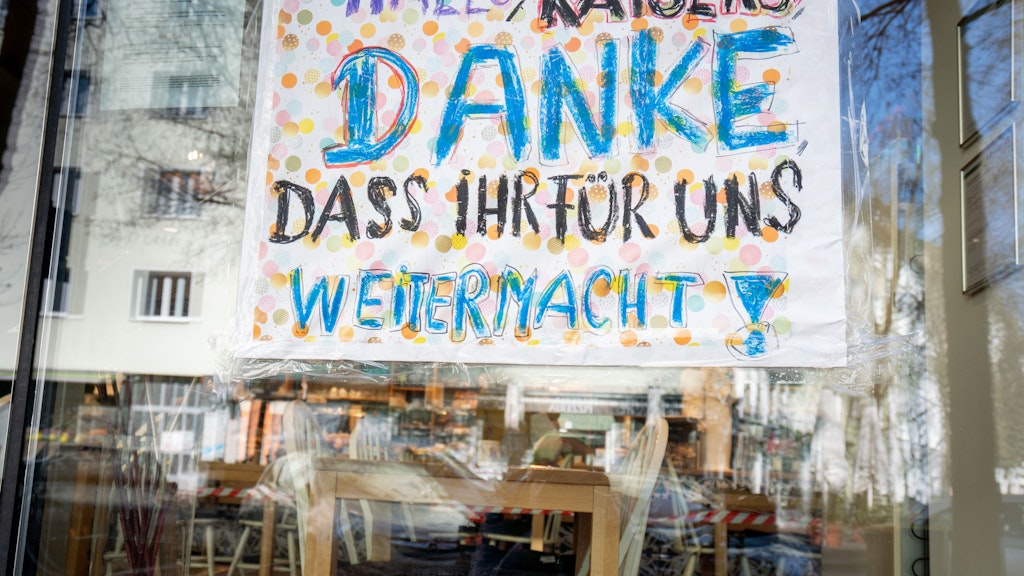 HALLO, KAISERS
DANKE
DASS IHR FÜR UNS
WEITERMACHT!